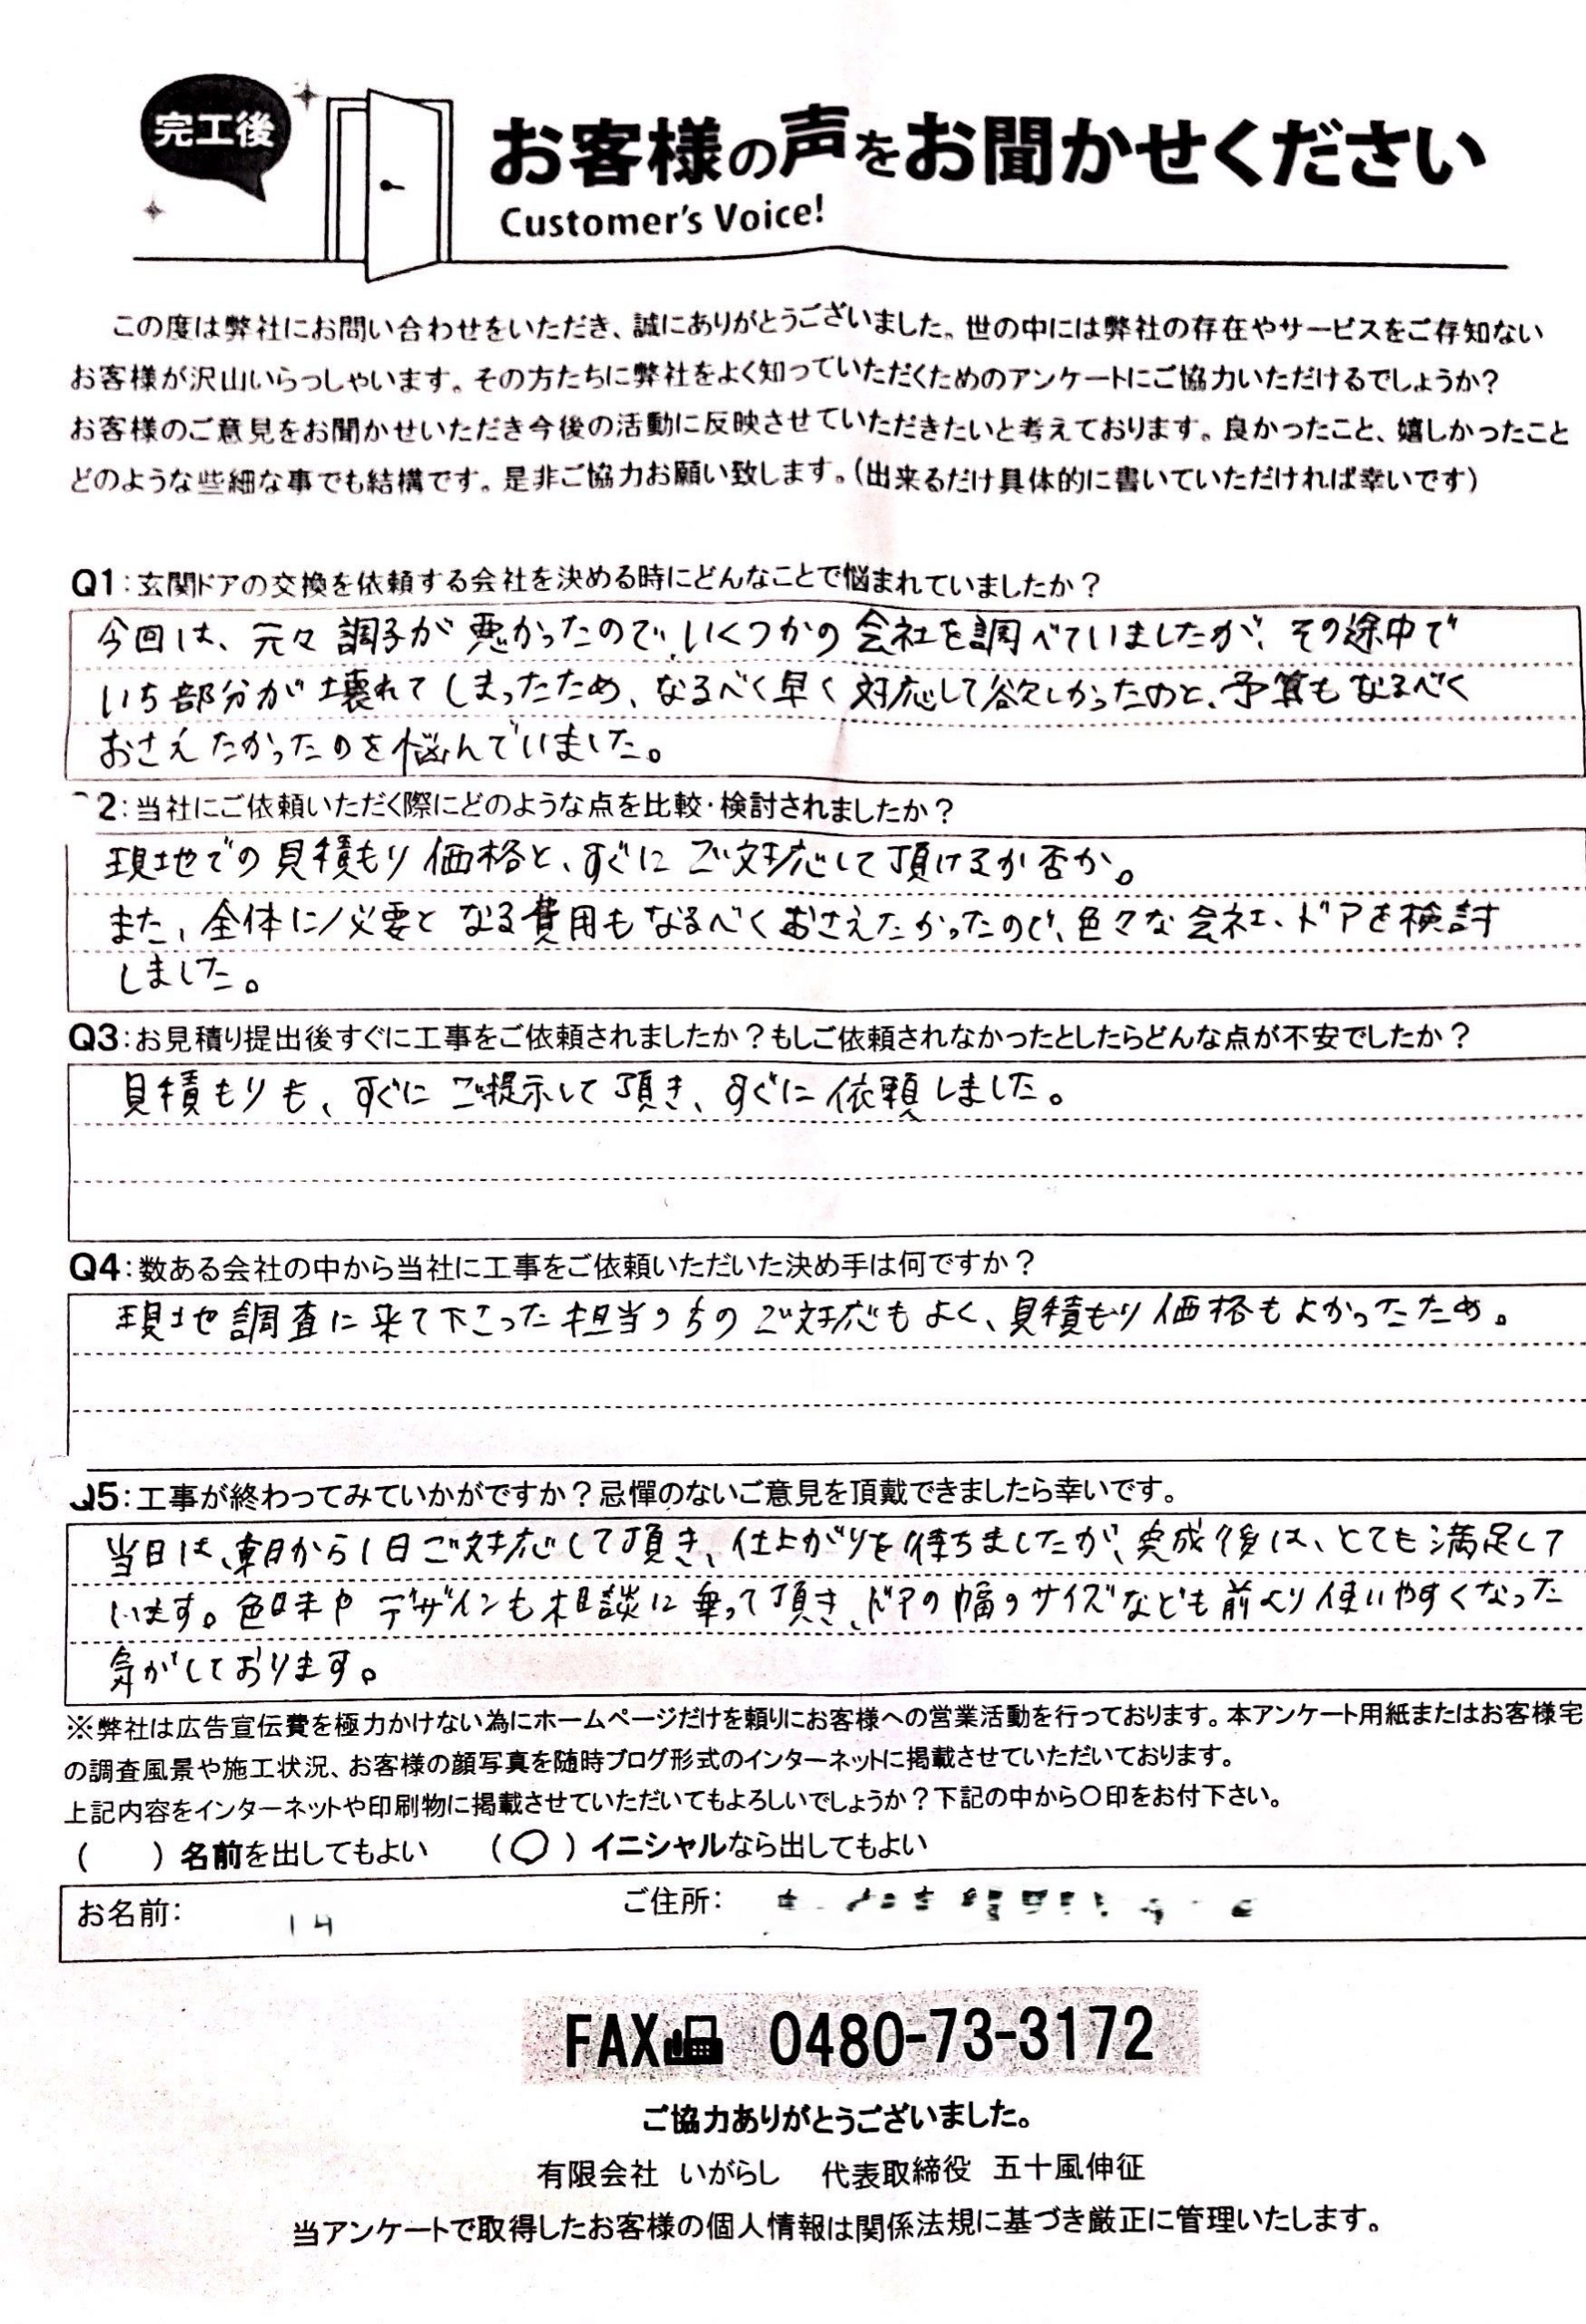 完工後
お客様の声をお聞かせください
Customer's Voice!
この度は弊社にお問い合わせをいただき、誠にありがとうございました。世の中には弊社の存在やサービスをご存知ない
お客様が沢山いらっしゃいます。その方たちに弊社をよく知っていただくためのアンケートにご協力いただけるでしょうか?
お客様のご意見をお聞かせいただき今後の活動に反映させていただきたいと考えております。良かったこと、嬉しかったこと
どのような些細な事でも結構です。是非ご協力お願い致します。(出来るだけ具体的に書いていただければ幸いです)
Q1:玄関ドアの交換を依頼する会社を決める時にどんなことで悩まれていましたか?
今回は、元々調子が悪かったので、いくつかの会社を調べていましたが、その途中で
いち部分が壊れてしまったため、なるべく早く対応して欲しかったのと、予算もなるべく
おさえたかったのを悩んでいました。
2:当社にご依頼いただく際にどのような点を比較・検討されましたか?
現地での見積もり価格と、すぐにご対応して頂けるか否か。
また、全体に必要となる費用もなるべくおさえたかったので、色々な会社、ドアを検討
しました。
Q3:お見積り提出後すぐに工事をご依頼されましたか?もしご依頼されなかったとしたらどんな点が不安でしたか?
見積もりも、すぐにご提示して頂き、すぐに依頼しました。
Q4:数ある会社の中から当社に工事をご依頼いただいた決め手は何ですか?
現地調査に来て下さった担当の方のご対応もよく、見積もり価格もよかったため。
Q5:工事が終わってみていかがですか?忌憚のないご意見を頂戴できましたら幸いです。
当日は、朝から1日ご対応して頂き、仕上がりを待ちましたが、完成後は、とても満足して
います。色味やデザインも相談に乗って頂き、ドアの幅のサイズなども前より使いやすくなった
気がしております。
※弊社は広告宣伝費を極力かけない為にホームページだけを頼りにお客様への営業活動を行っております。本アンケート用紙またはお客様宅
の調査風景や施工状況、お客様の顔写真を随時ブログ形式のインターネットに掲載させていただいております。
上記内容をインターネットや印刷物に掲載させていただいてもよろしいでしょうか?下記の中から○印をお付下さい。
( )名前を出してもよい (○)イニシャルなら出してもよい
お名前: ご住所:
FAX 0480-73-3172
ご協力ありがとうございました。
有限会社 いがらし 代表取締役 五十嵐伸征
当アンケートで取得したお客様の個人情報は関係法規に基づき厳正に管理いたします。